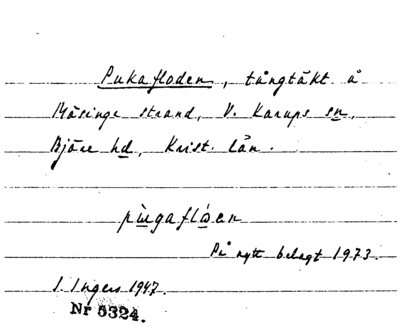 Pukafloden, tångtäkt å
Mäsinge strand, V. Karups sn,
Bjäre hd, Krist. län.
pùgaflóen
På nytt belagt 1973.
I. Ingers 1947.
Nr 5324.